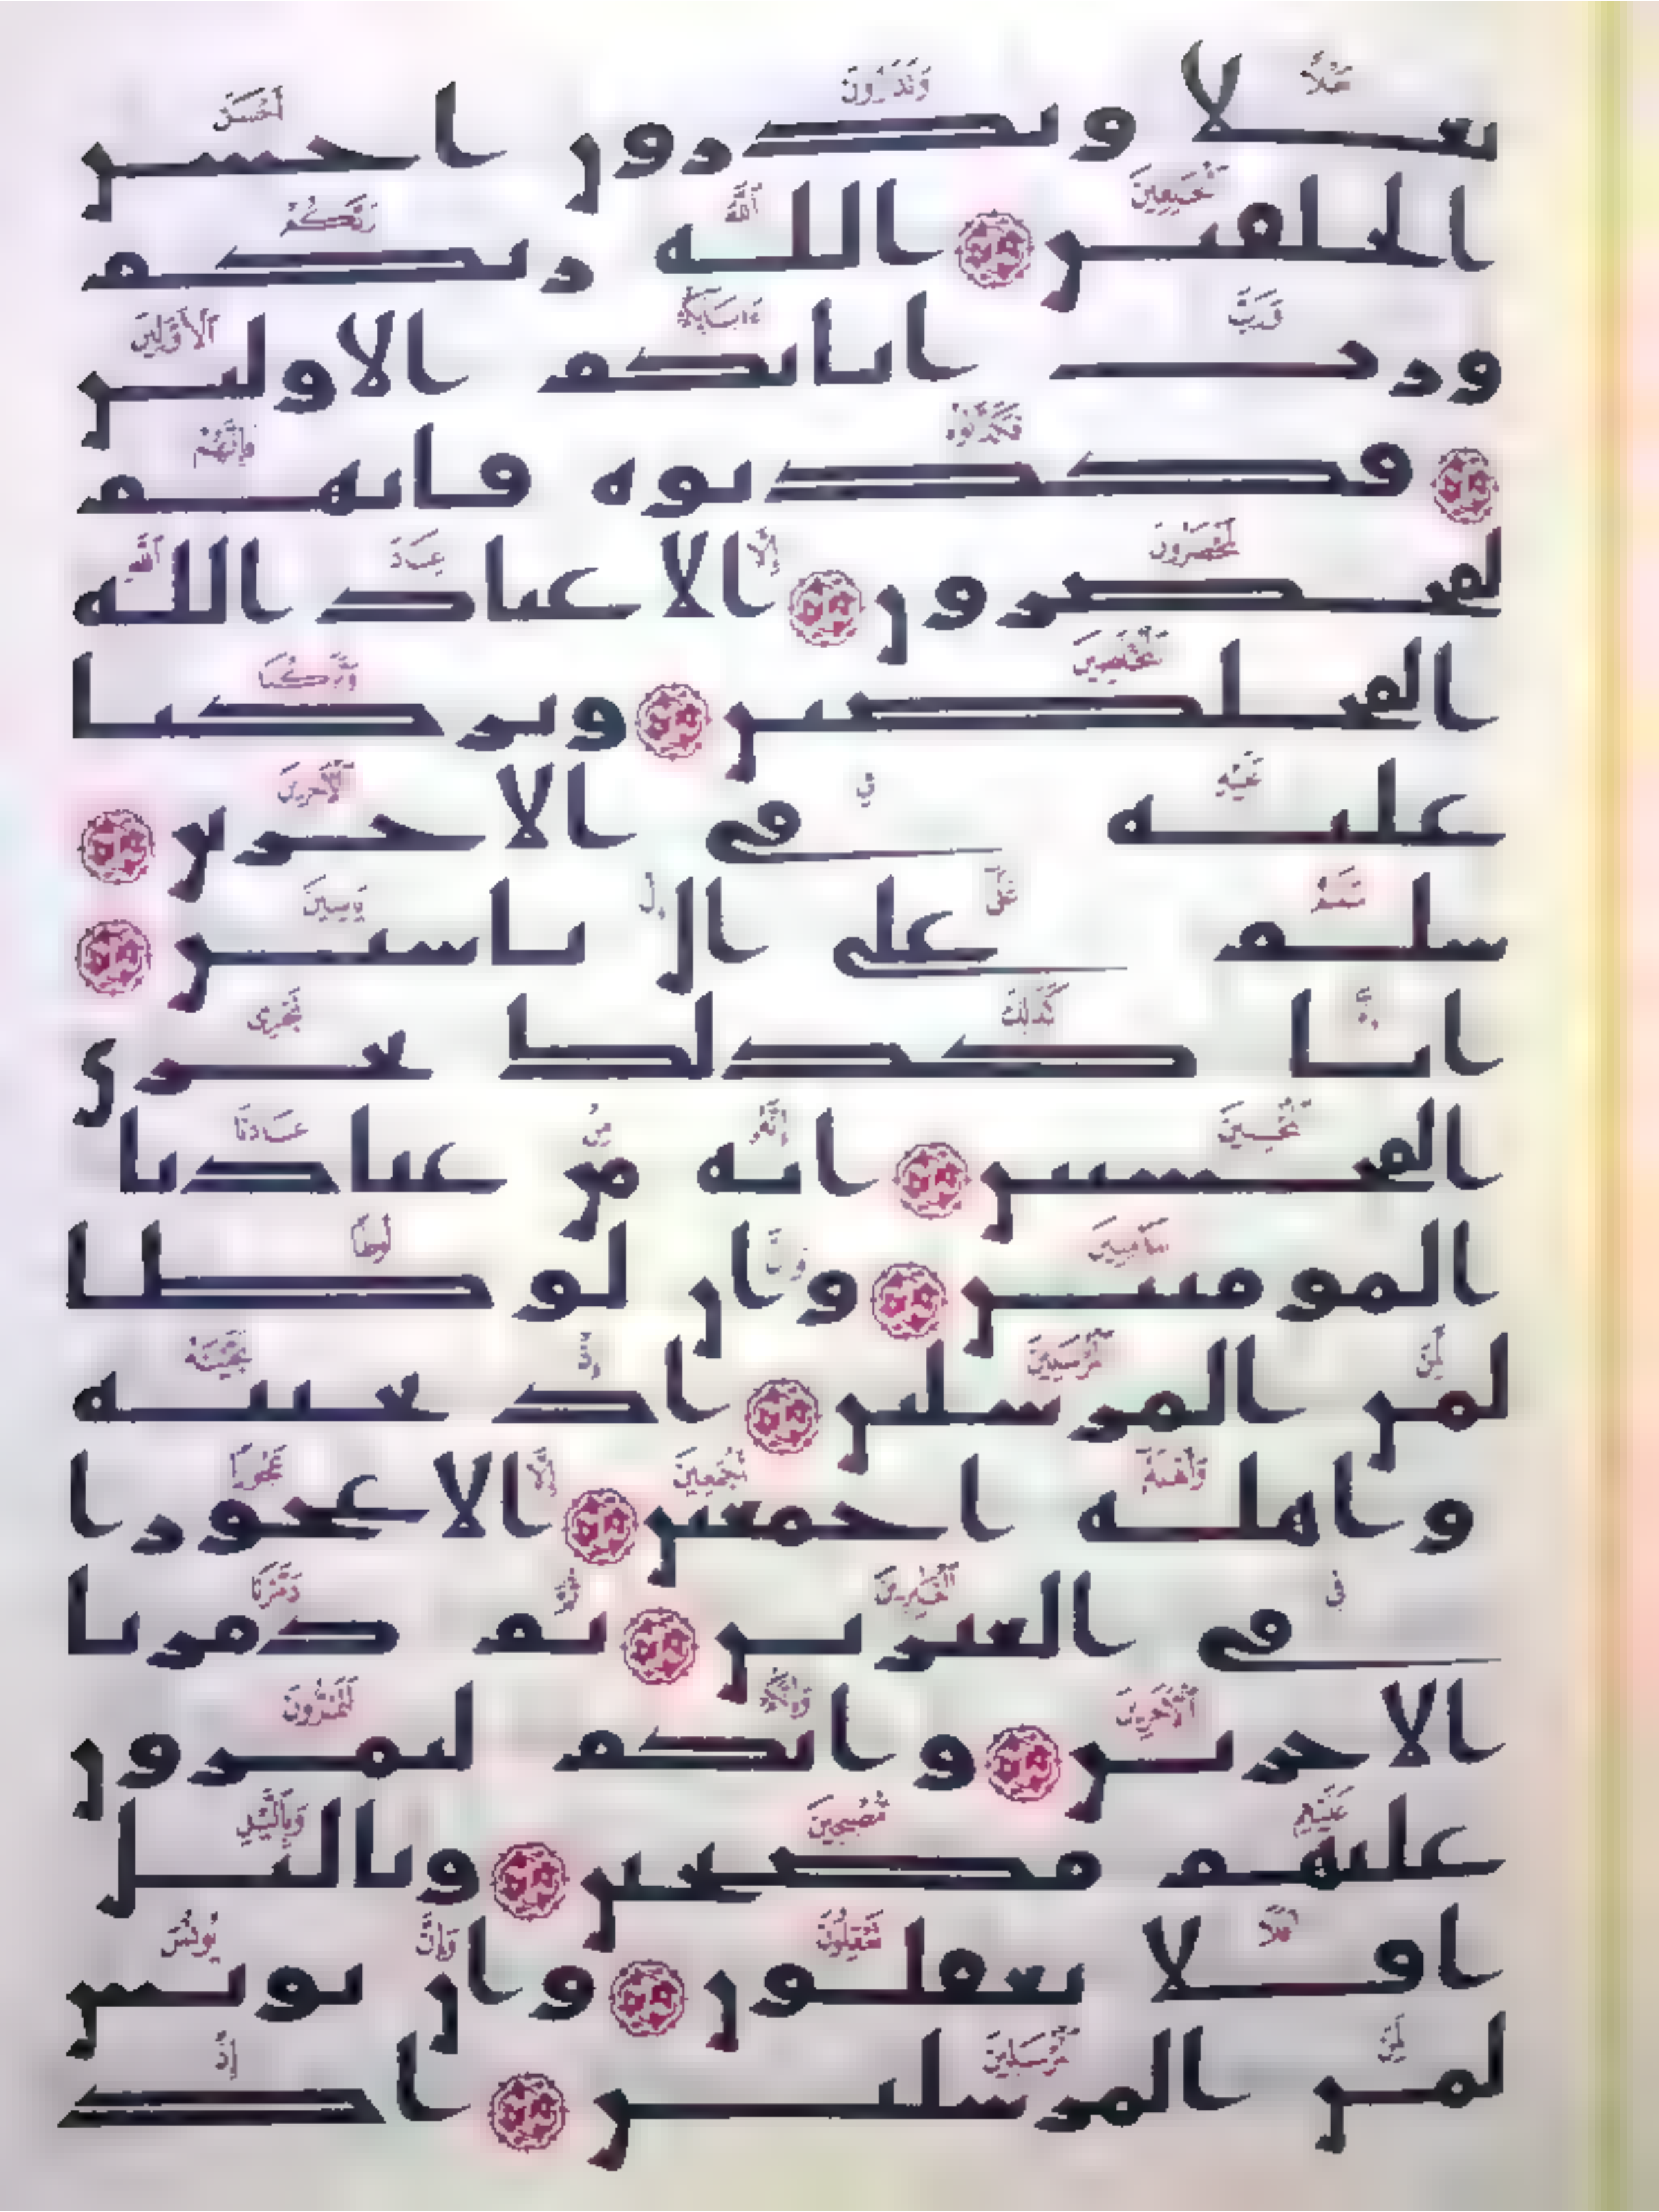 بعلا وتذرون احسن
الخلقين الله ربكم
ورب ابائكم الاولين
فكذبوه فانهم
لمحضرون الا عباد الله
المخلصين وتركنا
عليه في الاخرين
سلم على ال ياسين
انا كذلك نجزي
المحسنين انه من عبادنا
المومنين وان لوطا
لمن المرسلين اذ نجينه
واهله اجمعين الا عجوزا
في الغبرين ثم دمرنا
الاخرين وانكم لتمرون
عليهم مصبحين وباليل
افلا تعقلون وان يونس
لمن المرسلين اذ